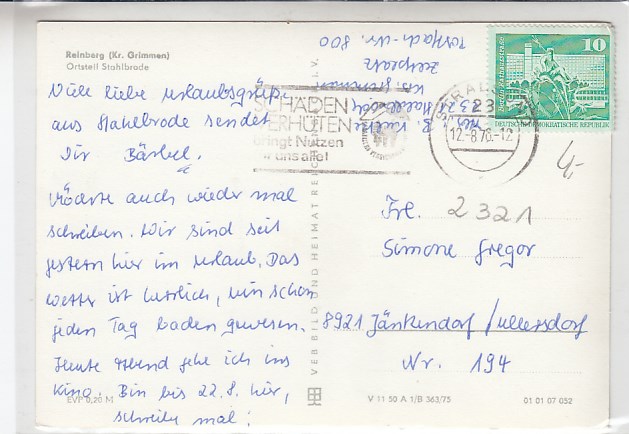 Reinberg (Kr. Grimmen)
Ortsteil Stahlbrode
Viele liebe Urlaubsgrüße
aus Stahlbrode sendet
Dir Bärbel.
Möchte auch wieder mal
schreiben. Wir sind seit
gestern hier im Urlaub. Das
Wetter ist herrlich, wir schon
jeden Tag baden gewesen.
Heute Abend gehe ich ins
Kino. Bin bis 22.8. hier,
schreibe mal!
EVP 0,20 M
B.
2321 Stahlbrode
Kr. Grimmen
Zeltplatz
Postfach-Nr. 800
SCHÄDEN
VERHÜTEN
bringt Nutzen
uns alle!
VEB BILD UND HEIMAT REICHENBACH i. V.
STRALSUND
23
12.-8.76.-12
10
DEUTSCHE DEMOKRATISCHE REPUBLIK
4,-
Frl. 2321
Simone Gregor
8921 Jänkendorf/Ullersdorf
Nr. 194
V 11 50 A 1/B 363/75
01 01 07 052